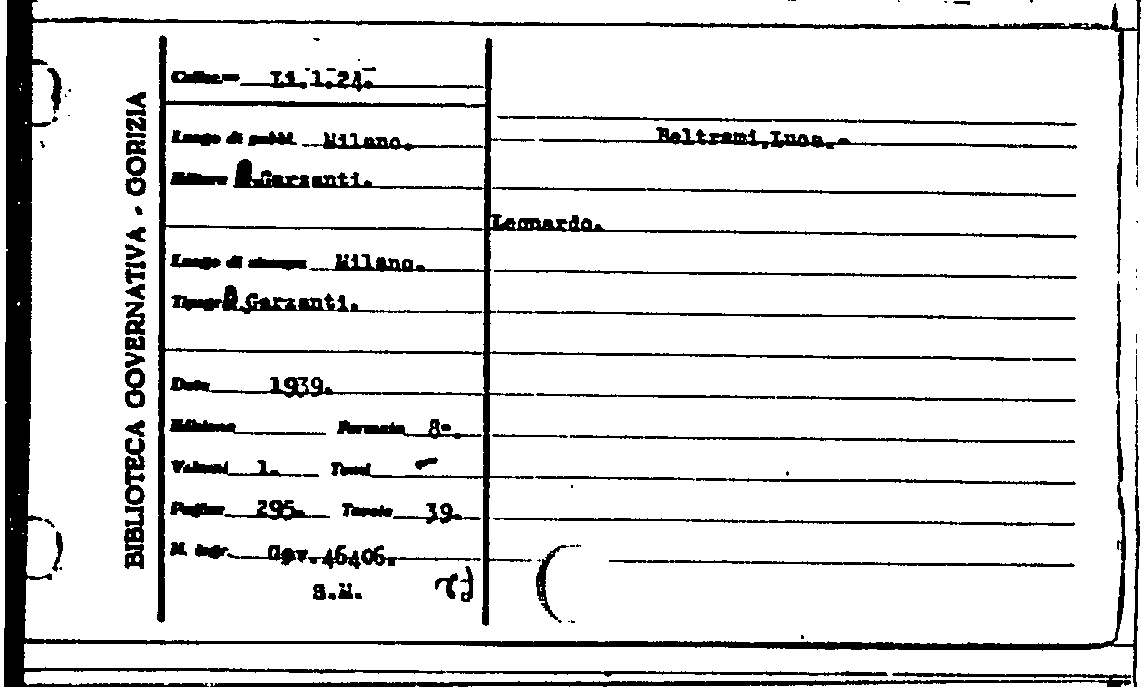 BIBLIOTECA GOVERNATIVA - GORIZIA
Colloc. Li.1.24.
Luogo di pubbl. Milano.
Editore Garzanti.
Luogo di stampa Milano.
Tipogr. Garzanti.
Data 1939.
Edizione Formato 8°.
Volumi 1. Tomi -
Pagine 295. Tavole 39.
N. ingr. Gov. 46406.
S.M.
Beltrami,Luca.-
Leonardo.